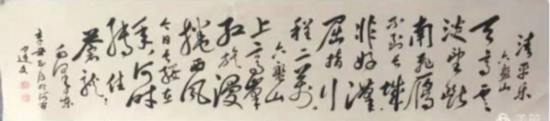 清平乐
六盘山
天高云
淡望断
南飞雁
不到长城
非好汉
屈指行
程二万
六盘山
上高峰
红旗漫
卷西风
今日长缨在
手何时
缚住
苍龙